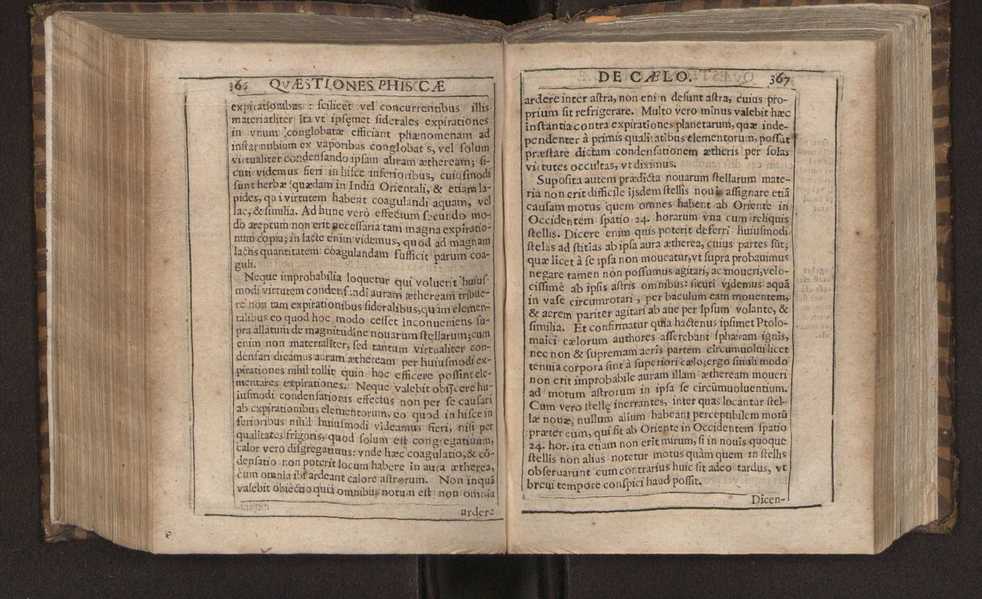 366 QVÆSTIONES PHISICÆ
expirationibus : scilicet vel concurrentibus illis
materialiter ita vt ipsęmet siderales expirationes
in vnum conglobatæ efficiant phænomenam ad
instar nubium ex vaporibus conglobat s, vel solum
virtualiter condensando ipsam aliram ætheream; si-
cuti videmus fieri in hisce inferioribus, cuiusmodi
sunt herbæ quædam in India Orientali, & etiam la-
pides, qui virtutem habent coagulandi aquam, vel
lac, & similia. Ad hunc verò effectum secundo mo-
do acceptum non erit necessaria tam magna expiratio-
num copia; in lacte enim videmus, quod ad magnam
lactis quantitatem coagulandam sufficit parum coa-
guli.
Neque improbabilia loquetur qui voluerit huius-
modi virtutem condensandi auram ætheream tribue-
re non tam expirationibus sideralibus, quàm elemen-
talibus eo quod hoc modo cesset inconueniens su-
pra allatum de magnitudine nouarum stellarum; cum
enim non materialiter, sed tantum virtualiter con-
densari dicamus auram ætheream per huiusmodi ex-
pirationes nihil tollit quin hoc efficere possint ele-
mentares expirationes. Neque valebit obijcere hu-
iusmodi condensationis effectus non per se causari
ab expirationibus elementorum, eo quod in hisce in
ferioribus nihil huiusmodi videamus fieri, nisi per
qualitates frigoris, quod solum est congregatiuum,
calor vero disgregatiuus: vnde hæc coagulatio, & cō-
densatio non poterit locum habere in aura ætherea,
cum omnia ibi ardeant calore astrorum. Non inquā
valebit obiectio quia omnibus notum est non omnia
ardere
DE CÆLO. 367
ardere inter astra, non eni n desunt astra, cuius pro-
prium sit refrigerare. Multo vero minus valebit hæc
instantia contra expirationes planetarum, quæ inde-
pendenter à primis qualitatibus elementorum, possūt
præstare dictam condensationem ætheris per solas
virtutes occultas, vt diximus.
Suposita autem prædicta nouarum stellarum mate-
ria non erit difficile ijsdem stellis nouis assignare etiā
causam motus quem omnes habent ab Oriente in
Occidentem spatio 24. horarum vna cum reliquis
stellis. Dicere enim quis poterit deferri huiusmodi
stelas ad stitias ab ipsa aura ætherea, cuius partes sūt;
quæ licet à se ipsa non moueatur, vt supra probauimus
negare tamen non possumus agitari, ac moueri, velo-
cissimè ab ipsis astris omnibus: sicuti videmus aquā
in vase circumrotari, per baculum eam mouentem,
& aerem pariter agitari ab aue per Ipsum volante, &
similia. Et confirmatur quia hactenus ipsimet Ptolo-
maici cælorum authores asserebant sphæram ignis,
nec non & supremam aeris partem circumuolui licet
tenuia corpora sint à superiori cælo; ergo simili modo
non erit improbabile auram illam ætheream moueri
ad motum astrorum in ipsa se circumuoluentium.
Cum vero stellę inerrantes, inter quas locantur stel-
læ nouæ, nullum alium habeant perceptibilem motū
præter eum, qui fit ab Oriente in Occidentem spatio
24. hor. ita etiam non erit mirum, si in nouis quoque
stellis non alius notetur motus quàm quem in stellis
obseruarunt cum contrarius huic sit adeo tardus, vt
breui tempore conspici haud possit.
Dicen-